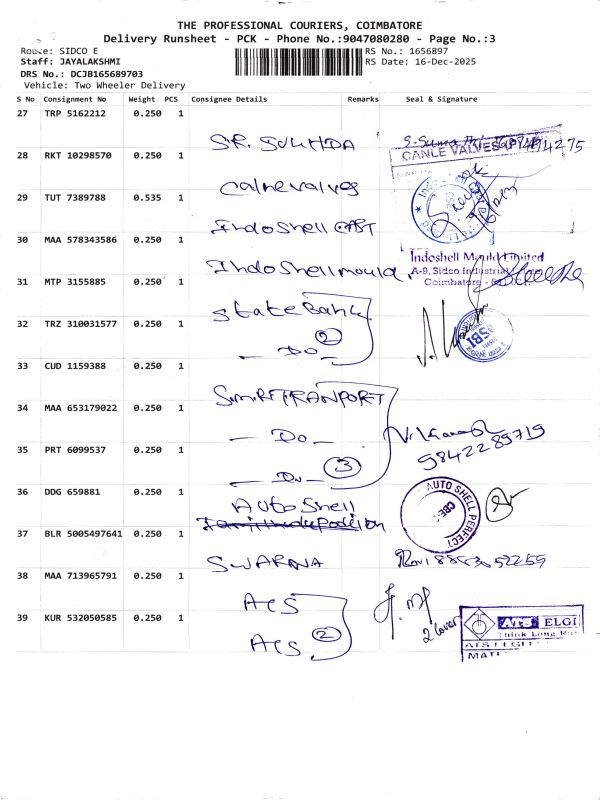 THE PROFESSIONAL COURIERS, COIMBATORE
Delivery Runsheet - PCK - Phone No.:9047080280 - Page No.:3
Route: SIDCO E RS No.: 1656897
Staff: JAYALAKSHMI RS Date: 16-Dec-2025
DRS No.: DCJB165689703
Vehicle: Two Wheeler Delivery
S No Consignment No Weight PCS Consignee Details Remarks Seal & Signature
27 TRP 5162212 0.250 1
SR. SUKHDA
28 RKT 10298570 0.250 1
CANLE VALVES
Calnevalves
29 TUT 7389788 0.535 1
IndoShell CAST
30 MAA 578343586 0.250 1
IndoShellmould.
Indoshell Mould Limited
A-9, Sidco Industrial
Coimbatore
31 MTP 3155885 0.250 1
State Bank
32 TRZ 310031577 0.250 1
2
— Do —
SBI
33 CUD 1159388 0.250 1
34 MAA 653179022 0.250 1
— Do —
9842289719
35 PRT 6099537 0.250 1
— Do —
3
36 DDG 659881 0.250 1
Auto Shell
AUTO SHELL PERFECT
CBE
37 BLR 5005497641 0.250 1
SWARNA
38 MAA 713965791 0.250 1
ACS
39 KUR 532050585 0.250 1
2
ACS
2 Cover
ATS ELGI
Think Long
ATS ELGI